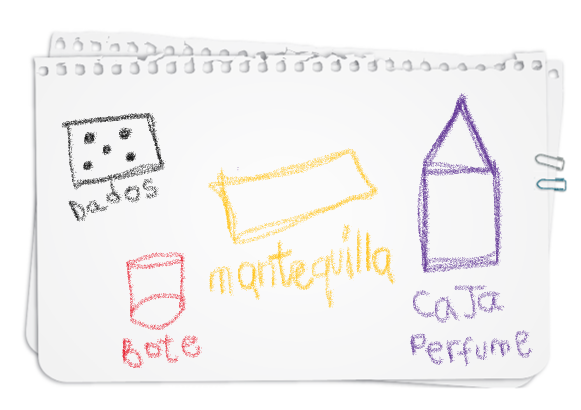 Dados
mantequilla
Bote
CaJa
Perfume